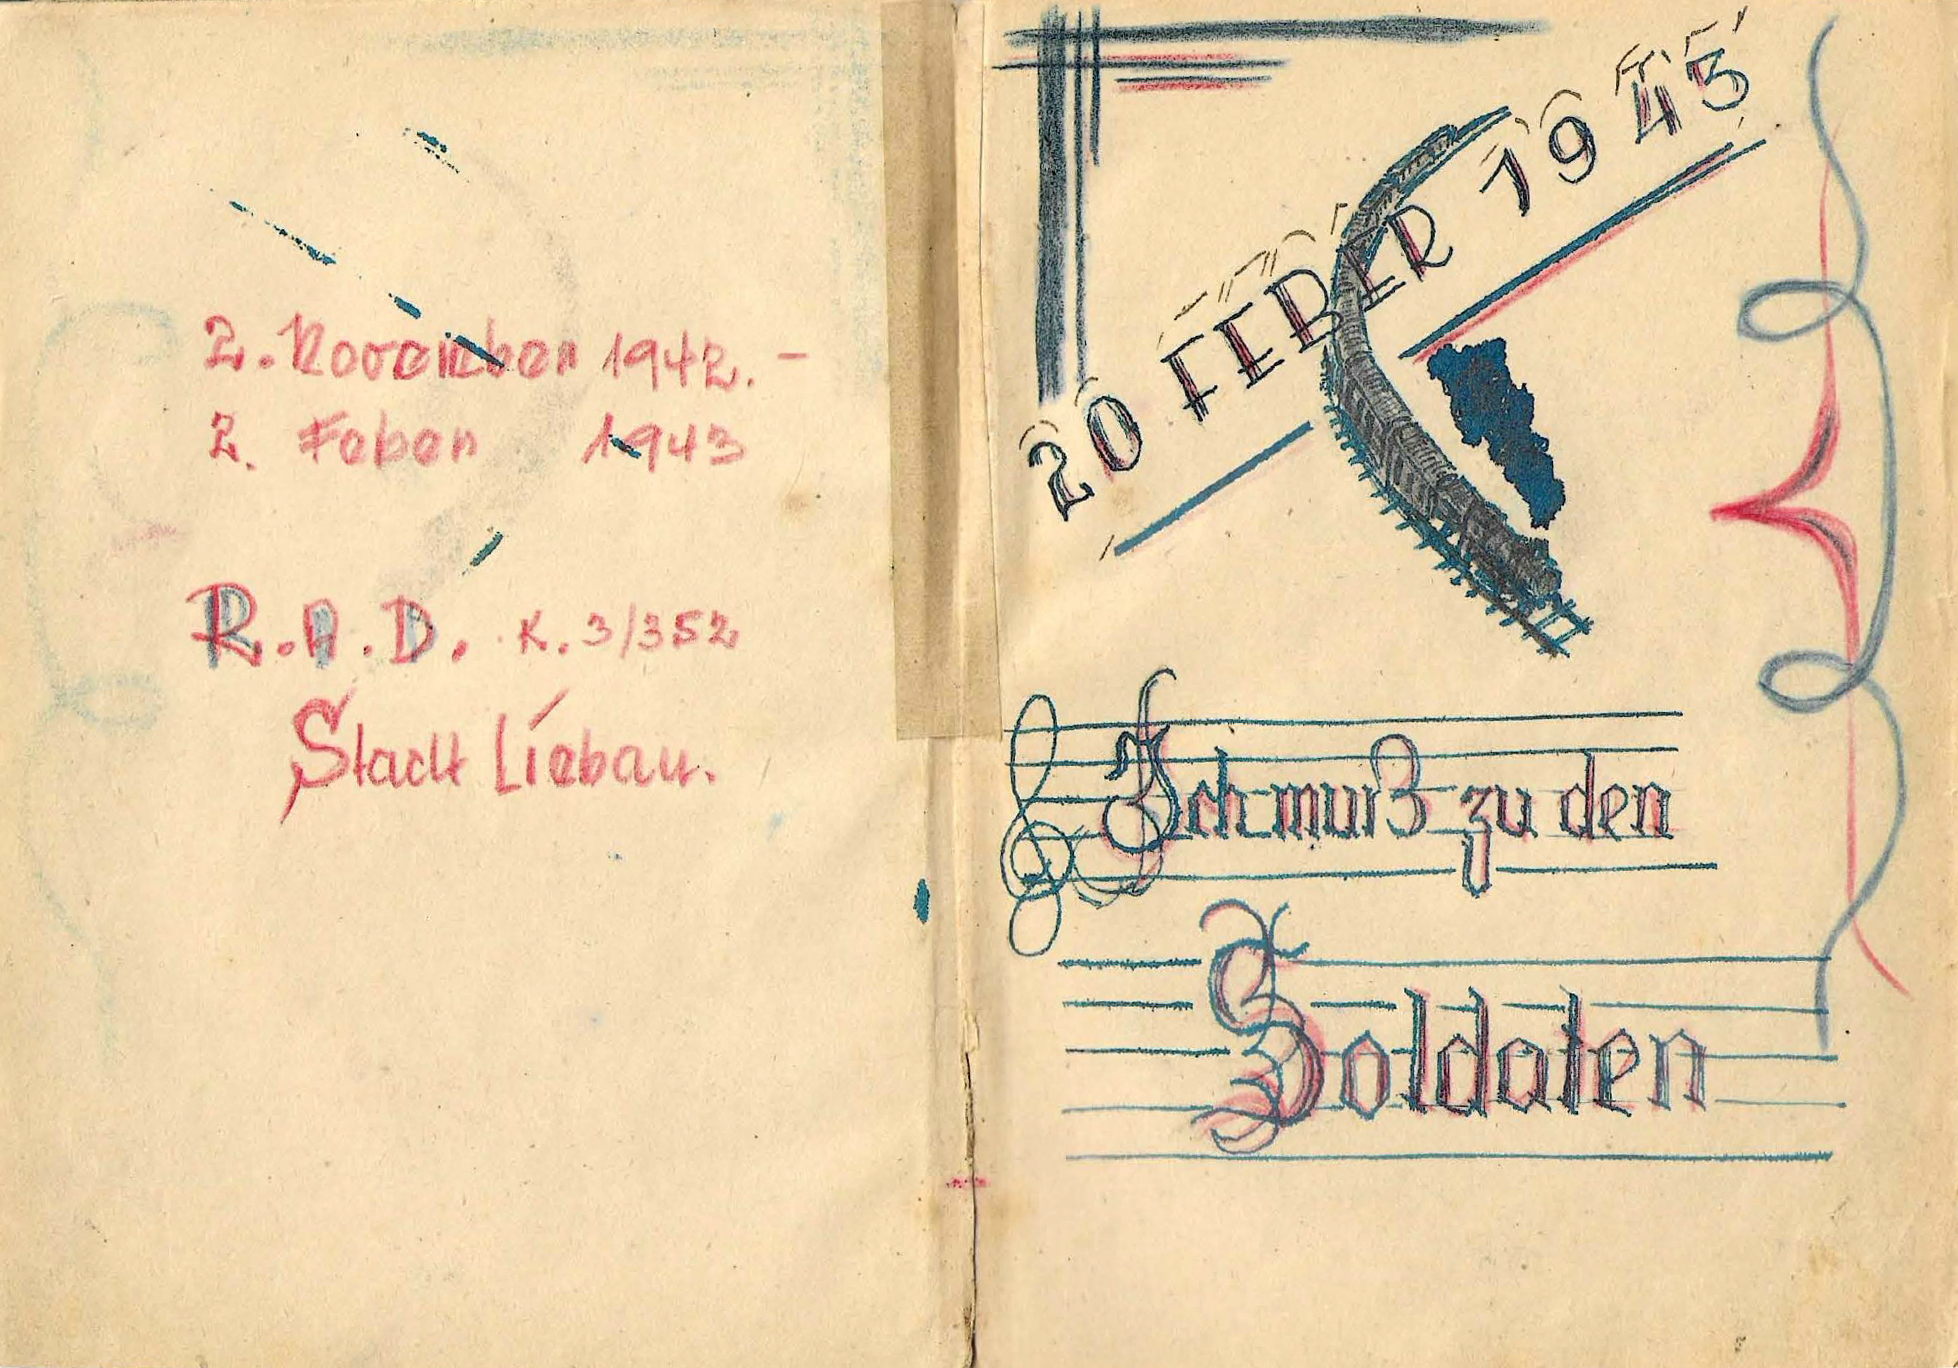 2. November 1942. -
2. Feber 1943
R.A.D. K. 3/352
Stadt Liebau.
20 FEBER 1943
Ich muß zu den
Soldaten